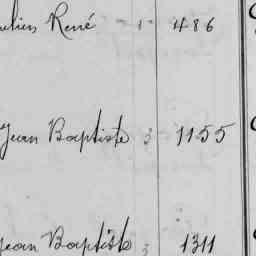 ulien René - 1 - 486
Jean Baptiste 3 1155
Jean Baptiste 3 1311